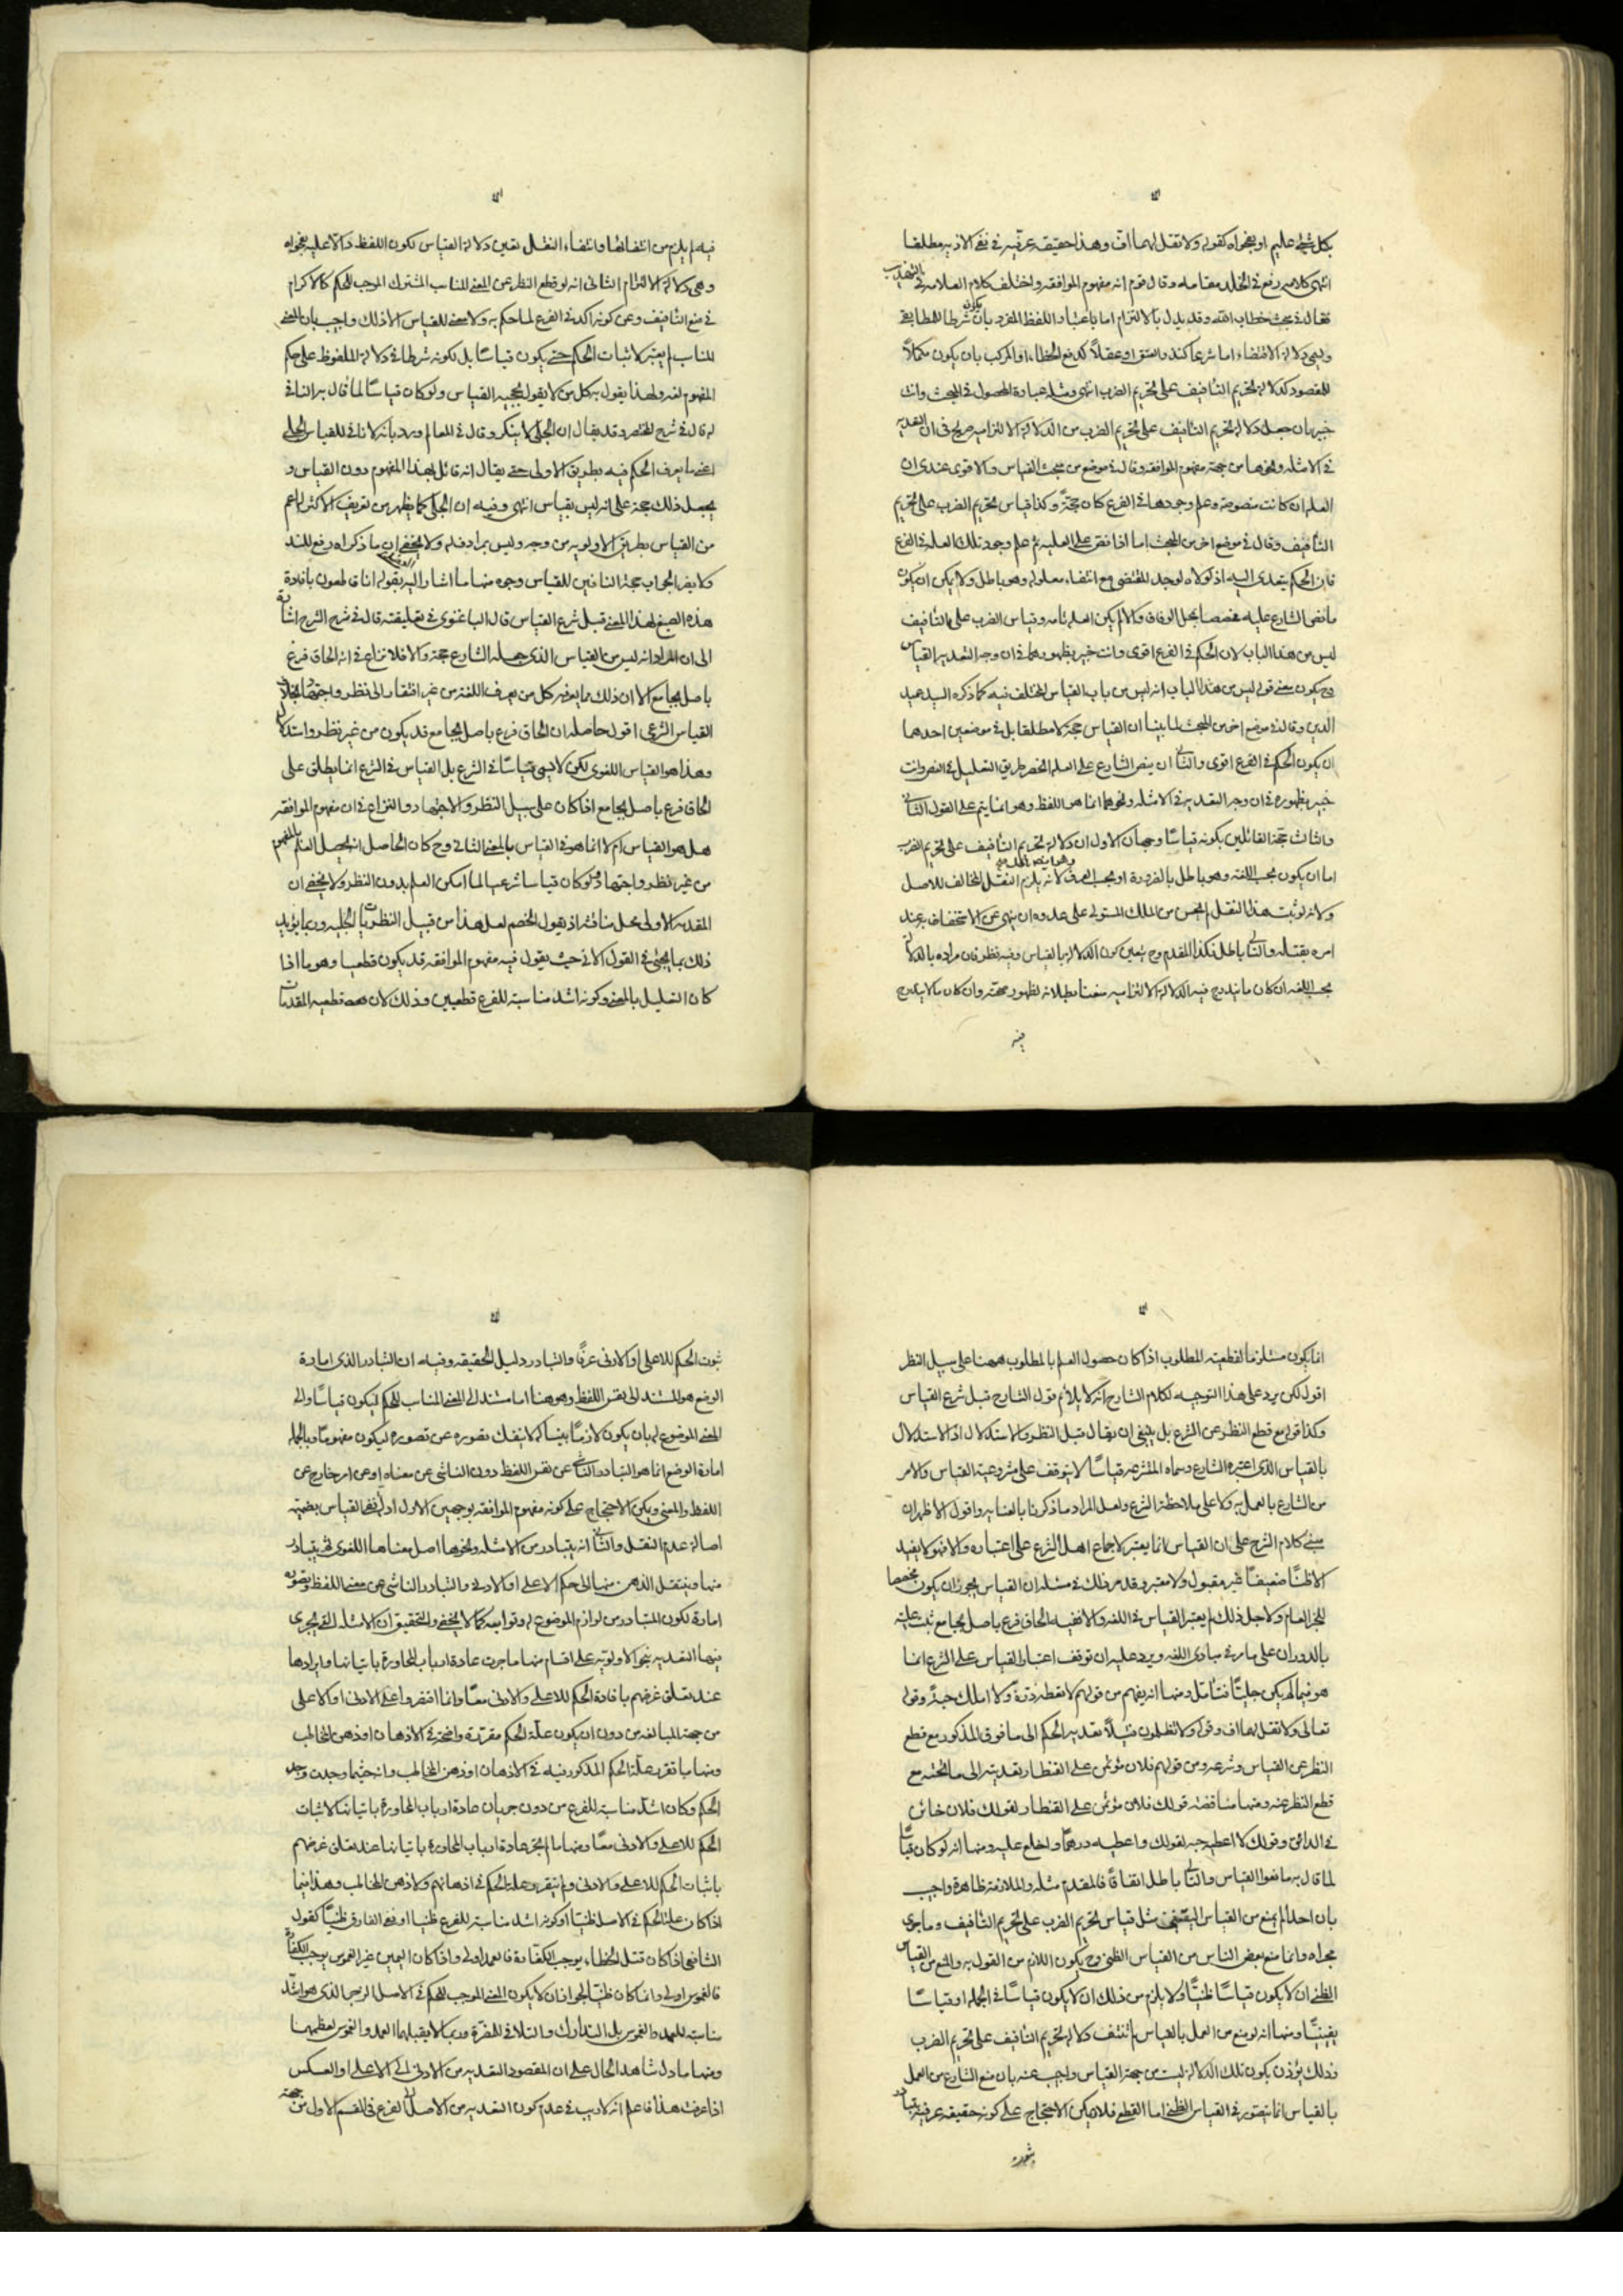 بكل شئ عليم او بفحواه كقوله ولا تقل لهما اف وهذا حقيقة عرفية في نفي الاذية مطلقا
انتهى كلامه رفع في الخلد مقامه وقال قوم انه مفهوم الموافقة واختلف كلام العلامة في التهذيب
فقال في بحث خطاب الله وقد يدل بالالتزام اما باعتبار اللفظ المفرد بان يكون شرطا للمطابقة
وهي دلالة الاقتضاء اما شرعا كـ او عقلا كدفع الخطاء او المركب بان يكون مكملا
للمقصود كدلالة تحريم التأفيف على تحريم الضرب انتهى ومثله عبارة المحصول في المبحث وانت
خبير بان جعل دلالة تحريم التأفيف على تحريم الضرب من الدلالة الالتزامية صريح في ان التعدية
في الامثلة ونحوها من جهة مفهوم الموافقة وقال في موضع من مبحث القياس والاقوى عندي ان
العلة ان كانت منصوصة وعلم وجودها في الفرع كان حجة وكذا قياس تحريم الضرب على تحريم
التأفيف وقال في موضع اخر من المبحث اما اذا نص على العلية ثم علم وجود تلك العلة في الفرع
فان الحكم يتعدى اليه اذ لولاه لوجد المقتضي مع انتفاء معلوله وهو باطل ولا يمكن ان يكون
ما نص الشارع عليه مخصصا بمحل الوفاق والا لم يكن العلة تامة وقياس الضرب على التأفيف
ليس من هذا الباب لان الحكم في الفرع اقوى وانت خبير بظهورهما في ان وجه التعدية القياس
وح يكون معنى قوله ليس من هذا الباب انه ليس من باب القياس المختلف فيه كما ذكره السيد عميد
الدين وقال في موضع اخر من المبحث لما بينا ان القياس حجة لا مطلقا بل في موضعين احدهما
ان يكون الحكم في الفرع اقوى والثاني ان ينص الشارع على العلة الخصر طريق التعليل في النص وانت
خبير بظهوره في ان وجه التعدية في الامثلة ونحوها انما هو اللفظ وهو انما يتم على القول الثاني
والثالث حجة القائلين بكونه قياسا وجهان الاول ان دلالة تحريم التأفيف على تحريم الضرب
اما ان يكون بحسب اللغة وهو باطل بالضرورة او بحسب العرف لانه يلزم النقل المخالف للاصل
ولانه لو ثبت هذا النقل لم يحسن من الملك المستولي على عدوه ان ينهى عن الاستخفاف به عند
امره بقتله والتالي باطل فكذا المقدم وح يتعين كون الدلالة بالقياس وفيه نظر فان مراده بالدلالة
بحسب اللغة ان كان ما يندرج فيه الدلالة الالتزامية منعنا بطلانه لظهور صحته وان كان ما لا يندرج
فيه
فيه لم يلزم من انتفائها وانتفاء النقل تعين دلالة القياس لكون اللفظ دالا عليه بفحواه
وهي دلالة الالتزام الثاني انه لو قطع النظر عن المعنى المناسب المشترك الموجب للحكم كالاكرام
في منع التأفيف وعن كونه اكد في الفرع لما حكم به ولا معنى للقياس الا ذلك واجيب بان المعنى
المناسب لم يعتبر لاثبات الحكم حتى يكون قياسا بل لكونه شرطا في دلالة الملفوظ على حكم
المفهوم لغة ولهذا يقول به كل من لا يقول بحجية القياس ولو كان قياسا لما قال به النافي
له قال في شرح المختصر وقد يقال ان الجلي لا ينكر وقال في المعالم ورد بانه لا نافي للقياس الجلي
اعني ما يعرف الحكم فيه بطريق الاولى حتى يقال انه قائل بهذا المفهوم دون القياس و
يجعل ذلك حجة على انه ليس بقياس انتهى وفيه ان الجلي كما يظهر من تعريف الاكثر له اعم
من القياس بطريق الاولوية من وجه وليس مرادفا له ولا يخفى ان ما ذكراه رفع للسند
ولا يضر الجواب حجة النافين للقياس وجوه منها ما اشار اليه بقوله انا قاطعون بافادة
هذه الصيغ لهذا المعنى قبل شرع القياس قال الباغنوي في تعليقته قال في شرح الشرح اشارة
الى ان المراد انه ليس من القياس الذي جعله الشارع حجة والا فلا نزاع في انه الحاق فرع
باصل بجامع الا ان ذلك مما يعرفه كل من يعرف اللغة من غير افتقار الى نظر واجتهاد بخلاف
القياس الشرعي اقول حاصله ان الحاق فرع باصل بجامع قد يكون من غير نظر واستدلال
وهذا هو القياس اللغوي لكن لا يسمى قياسا في الشرع بل القياس في الشرع انما يطلق على
الحاق فرع باصل بجامع اذا كان على سبيل النظر والاجتهاد والنزاع في ان مفهوم الموافقة
هل هو القياس ام لا انما هو في القياس بالمعنى الثاني وح كان الحاصل انه يحصل العلم بالمفهوم
من غير نظر واجتهاد فلو كان قياسا شرعيا لما امكن العلم بدون النظر ولا يخفى ان
المقدمة الاولى محل مناقشة اذ يقول الخصم لعل هذا من قبيل النظريات الجلية وربما يؤيد
ذلك بما يجئ في القول الآتي حيث يقول فيه مفهوم الموافقة قد يكون قطعيا وهو ما اذا
كان التعليل بالمعنى وكونه اشد مناسبة للفرع قطعيين وذلك لان قطعية المقدمات
انما يكون مستلزما لقطعية المطلوب اذا كان حصول العلم بالمطلوب ههنا على سبيل النظر
اقول لكن يرد على هذا التوجيه لكلام الشارح انه لا يلائم قول الشارح قبل شرع القياس
وكذا قوله مع قطع النظر عن الشرع بل ينبغي ان يقال قبل النظر والاستدلال اذ الاستدلال
بالقياس الذي اعتبره الشارع وسماه المتشرعة قياسا لا يتوقف على مشروعية القياس والامر
من الشارع بالعمل به ولا على ملاحظة الشرع ولعل المراد ما ذكرنا بالعناية واقول الاظهر ان
مبنى كلام الشرح على ان القياس انما يعتبر لاجماع اهل الشرع على اعتباره والا فهو لا يفيد
الا ظنا ضعيفا غير مقبول ولا معتبر وقد مر ذلك في مسئلة ان القياس يجوز ان يكون مخصصا
للخبر العام ولاجل ذلك لم يعتبر القياس في اللغة والا ففيه الحاق فرع باصل بجامع ثبت عليته
بالدوران على ما مر في مبادي اللغة ويرد عليه ان توقف اعتبار القياس على الشرع انما
هو فيما لم يكن جليا فتأمل ومنها انه يفهم من قولهم لا تعطه ذرة ولا املك حبة وقوله
تعالى ولا تقل لهما اف وقوله ولا تظلمون فتيلا تعدية الحكم الى ما فوق المذكور مع قطع
النظر عن القياس وشرعه ومن قولهم فلان مؤتمن على القنطار تعديته الى ما تحته مع
قطع النظر عنه ومنها مناقضة قولك فلان مؤتمن على القنطار لقولك فلان خائن
في الدانق وقولك لا اعطيه حبة لقولك واعطيه درهما واخلع عليه ومنها انه لو كان قياسا
لما قال به مانعوا القياس والتالي باطل اتفاقا فالمقدم مثله والملازمة ظاهرة واجيب
بان احدا لم يمنع من القياس اليقيني مثل قياس تحريم الضرب على تحريم التأفيف وما جرى
مجراه وانما منع بعض الناس من القياس الظني وح يكون اللازم من القول به والمنع من القياس
الظني ان لا يكون قياسا ظنيا ولا يلزم من ذلك ان لا يكون قياسا في الجملة او قياسا
يقينيا ومنها انه لو منع من العمل بالقياس لم تنتف دلالة تحريم التأفيف على تحريم الضرب
وذلك يؤذن بكون تلك الدلالة ليست من جهة القياس واجيب عنه بان منع الشارع من العمل
بالقياس انما يتصور في القياس الظني اما القطع فلا ويمكن الاحتجاج على كونه حقيقة عرفية بتبادر
ثبوت الحكم للاعلى او الادنى عرفا والتبادر دليل الحقيقة وفيه ان التبادر الذي امارة
الوضع هو المستند الى نفس اللفظ وهو هنا اما مستند الى المعنى المناسب للحكم فيكون قياسا والى
المعنى الموضوع له بان يكون لازما بينا له لا ينفك تصوره عن تصوره ليكون مفهوما وبالجملة
امارة الوضع انما هو التبادر الناشي عن نفس اللفظ دون الناشي عن معناه او عن امر خارج عن
اللفظ والمعنى ويمكن الاحتجاج على كونه مفهوم الموافقة بوجهين الاول ادلة نفي القياس بضميمة
اصالة عدم النقل والثاني انه يتبادر من الامثلة ونحوها اصل معناها اللغوي ثم يتبادر
منها وينتقل الذهن منها الى حكم الاعلى او الادنى والتبادر الناشي عن معنى اللفظ وتصوره
امارة لكون المتبادر من لوازم الموضوع له وتوابعه كما لا يخفى والتحقيق ان الامثلة التي يجري
فيها التعدية بنحو الاولوية على اقسام منها ما جرت عادة ارباب المحاورة باتيانها وايرادها
عند تعلق غرضهم بافادة الحكم للاعلى والادنى معا وانما اقتصروا على الادنى او الاعلى
من جهة المبالغة من دون ان يكون علة الحكم مقررة واضحة في الاذهان او ذهن المخاطب
ومنها ما تقرر علة الحكم المذكور فيه في الاذهان او ذهن المخاطب وانه حيثما وجدت وجد
الحكم وكان اشد مناسبة للفرع من دون جريان عادة ارباب المحاورة باتيانها لاثبات
الحكم للاعلى والادنى معا ومنها ما لم يجر عادة ارباب المحاورة باتيانها عند تعلق غرضهم
باثبات الحكم للاعلى والادنى ولم يتقرر علة الحكم في اذهانهم ولا ذهن المخاطب وهذا فيما
اذا كان علة الحكم في الاصل ظنيا او كونه اشد مناسبة للفرع ظنيا او نفي الفارق ظنيا كقول
الشافعي اذا كان قتل الخطاء يوجب الكفارة فالعمد اولى واذا كان اليمين غير الغموس يوجب الكفارة
فالغموس اولى وانما كان ظنيا لجواز ان لا يكون المعنى الموجب للحكم في الاصل الزجر الذي هو اشد
مناسبة للعمد والغموس بل التدارك والتلافي للمضرة وربما لا يقبلهما العمد والغموس لعظمهما
ومنها ما دل شاهد الحال على ان المقصود التعدية من الادنى الى الاعلى او العكس
اذا عرفت هذا فاعلم انه لا ريب في عدم كون التعدية من الاصل الى الفرع في القسم الاول من جهة